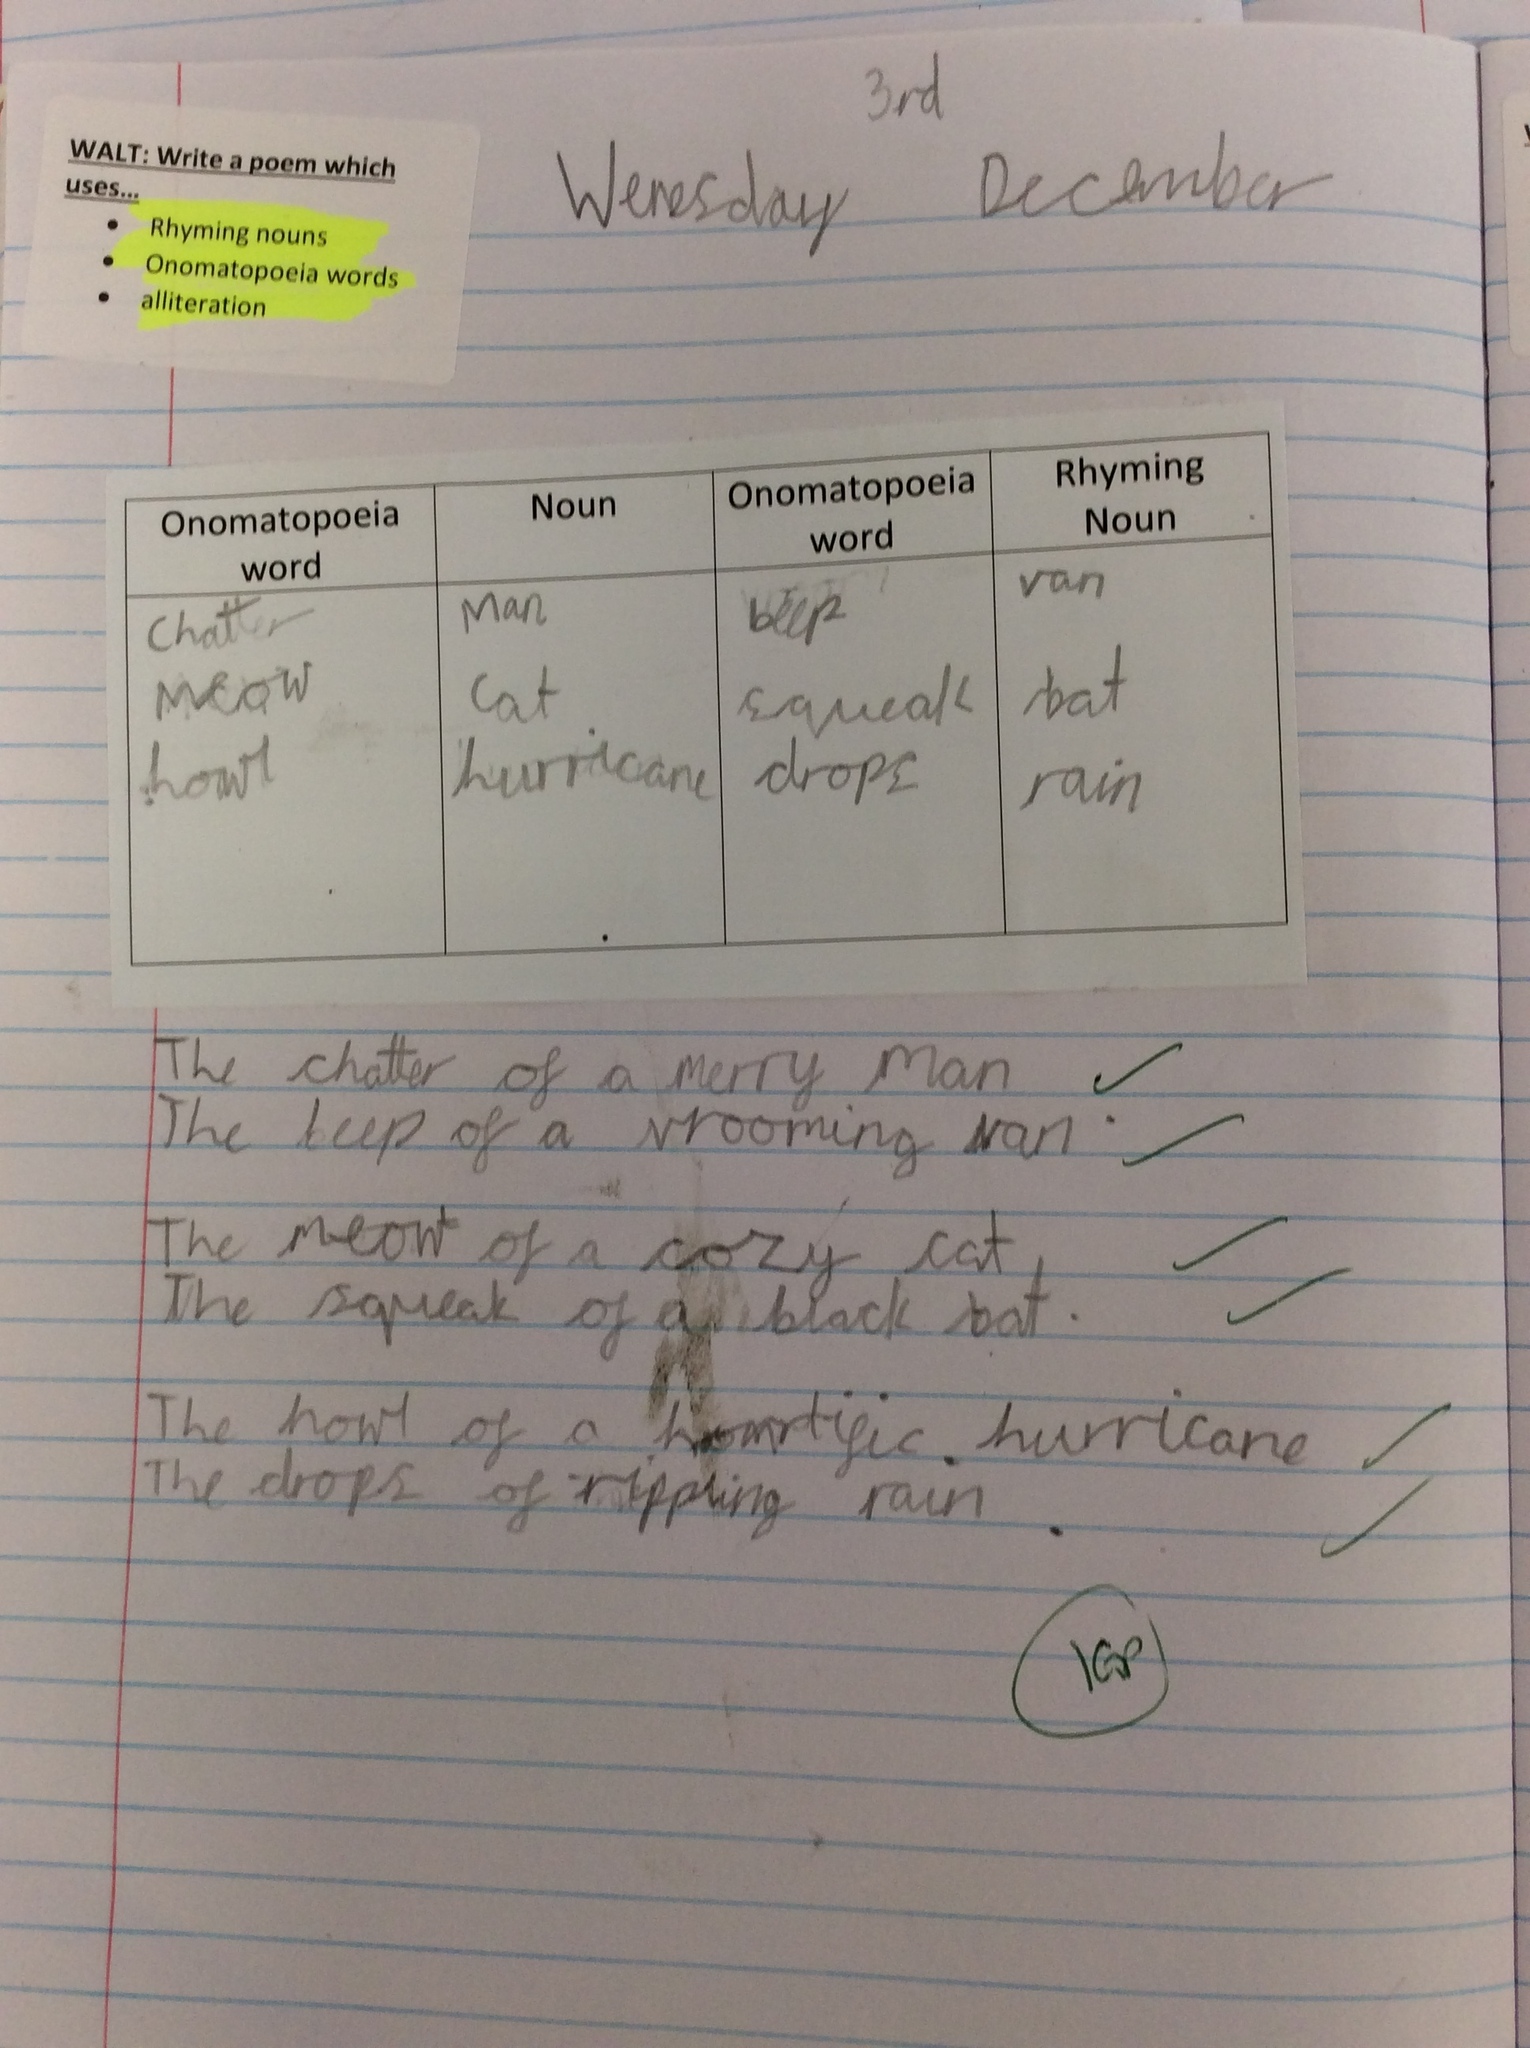 3rd
WALT: Write a poem which
uses...
• Rhyming nouns
• Onomatopoeia words
• alliteration
Wenesday December
Onomatopoeia word Noun Onomatopoeia word Rhyming Noun
Chatter Man beep van
Meow Cat squeak bat
howl hurricane drops rain
The chatter of a merry Man
The beep of a vrooming van.
The meow of a cozy cat,
The squeak of a black bat.
The howl of a hurricane
The drops of rippling rain.